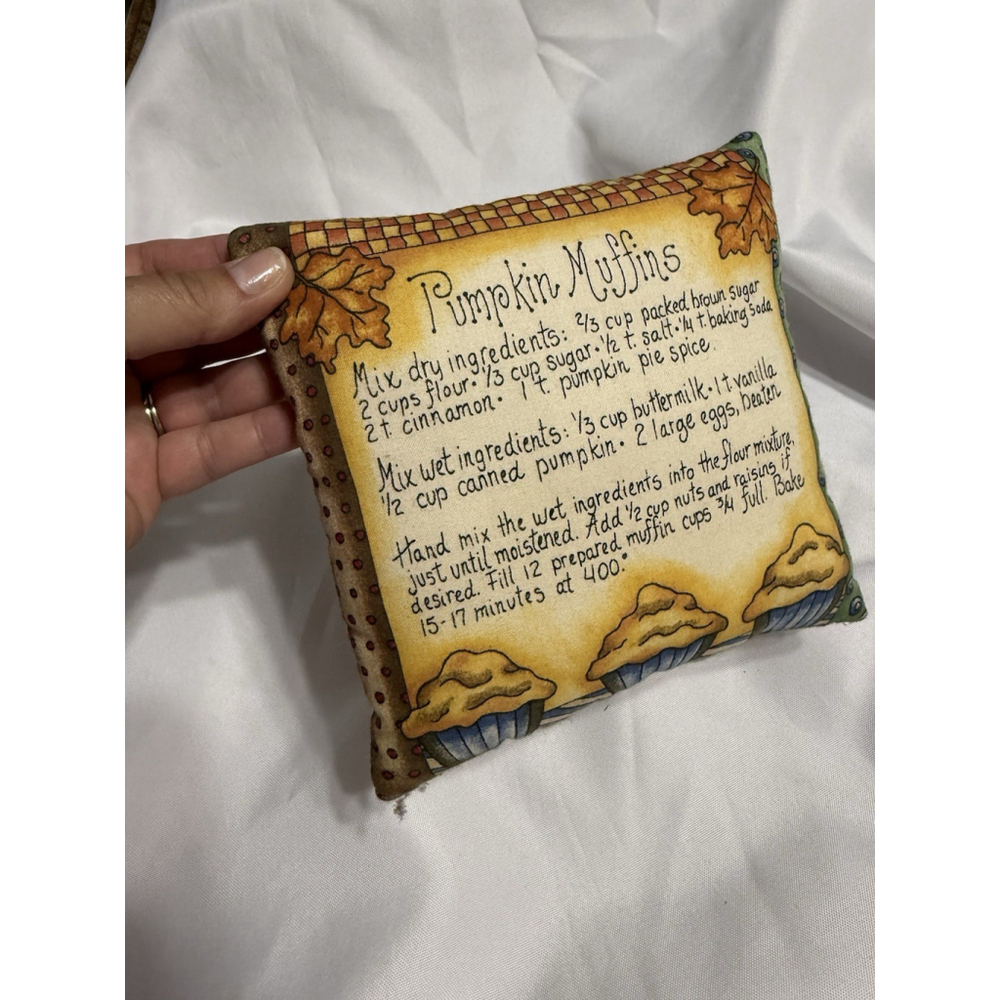 Pumpkin Muffins
Mix dry ingredients: 2/3 cup packed brown sugar
2 cups flour • 1/3 cup sugar • 1/2 t. salt • 1/4 t. baking soda
2 t. cinnamon • 1 t. pumpkin pie spice.
Mix wet ingredients: 1/3 cup buttermilk • 1 t. vanilla
1/2 cup canned pumpkin • 2 large eggs, beaten
Hand mix the wet ingredients into the flour mixture,
just until moistened. Add 1/2 cup nuts and raisins if
desired. Fill 12 prepared muffin cups 3/4 full. Bake
15-17 minutes at 400°.